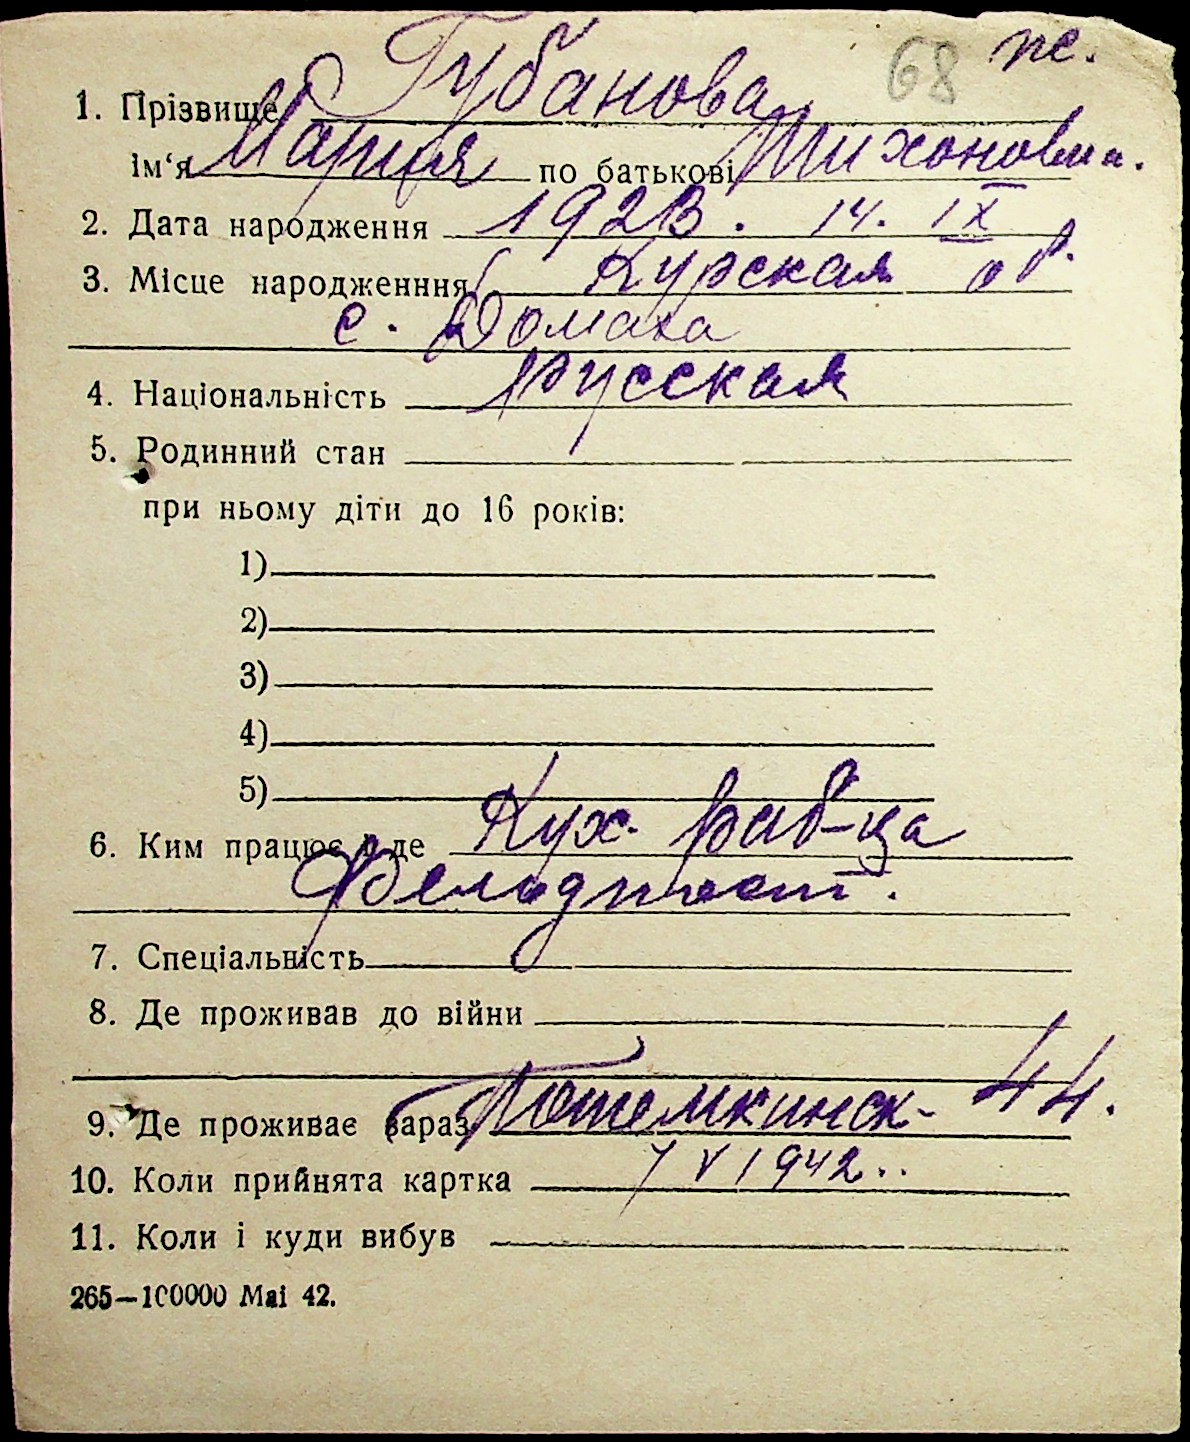 68
1. Прізвище Губанова
Ім‘я Мария по батькові Тихоновна.
2. Дата народження 1923. 14. IX
3. Місце народженння Курская об.
с. Домаха
4. Національність Русская
5. Родинний стан
при ньому діти до 16 років:
1)
2)
3)
4)
5)
6. Ким працює і де Кух. раб-ца
Фельдпост.
7. Спеціальність
8. Де проживав до війни
9. Де проживає зараз Потемкинск- 44.
10. Коли прийнята картка 7 V 1942..
11. Коли і куди вибув
265—100000 Маі 42.